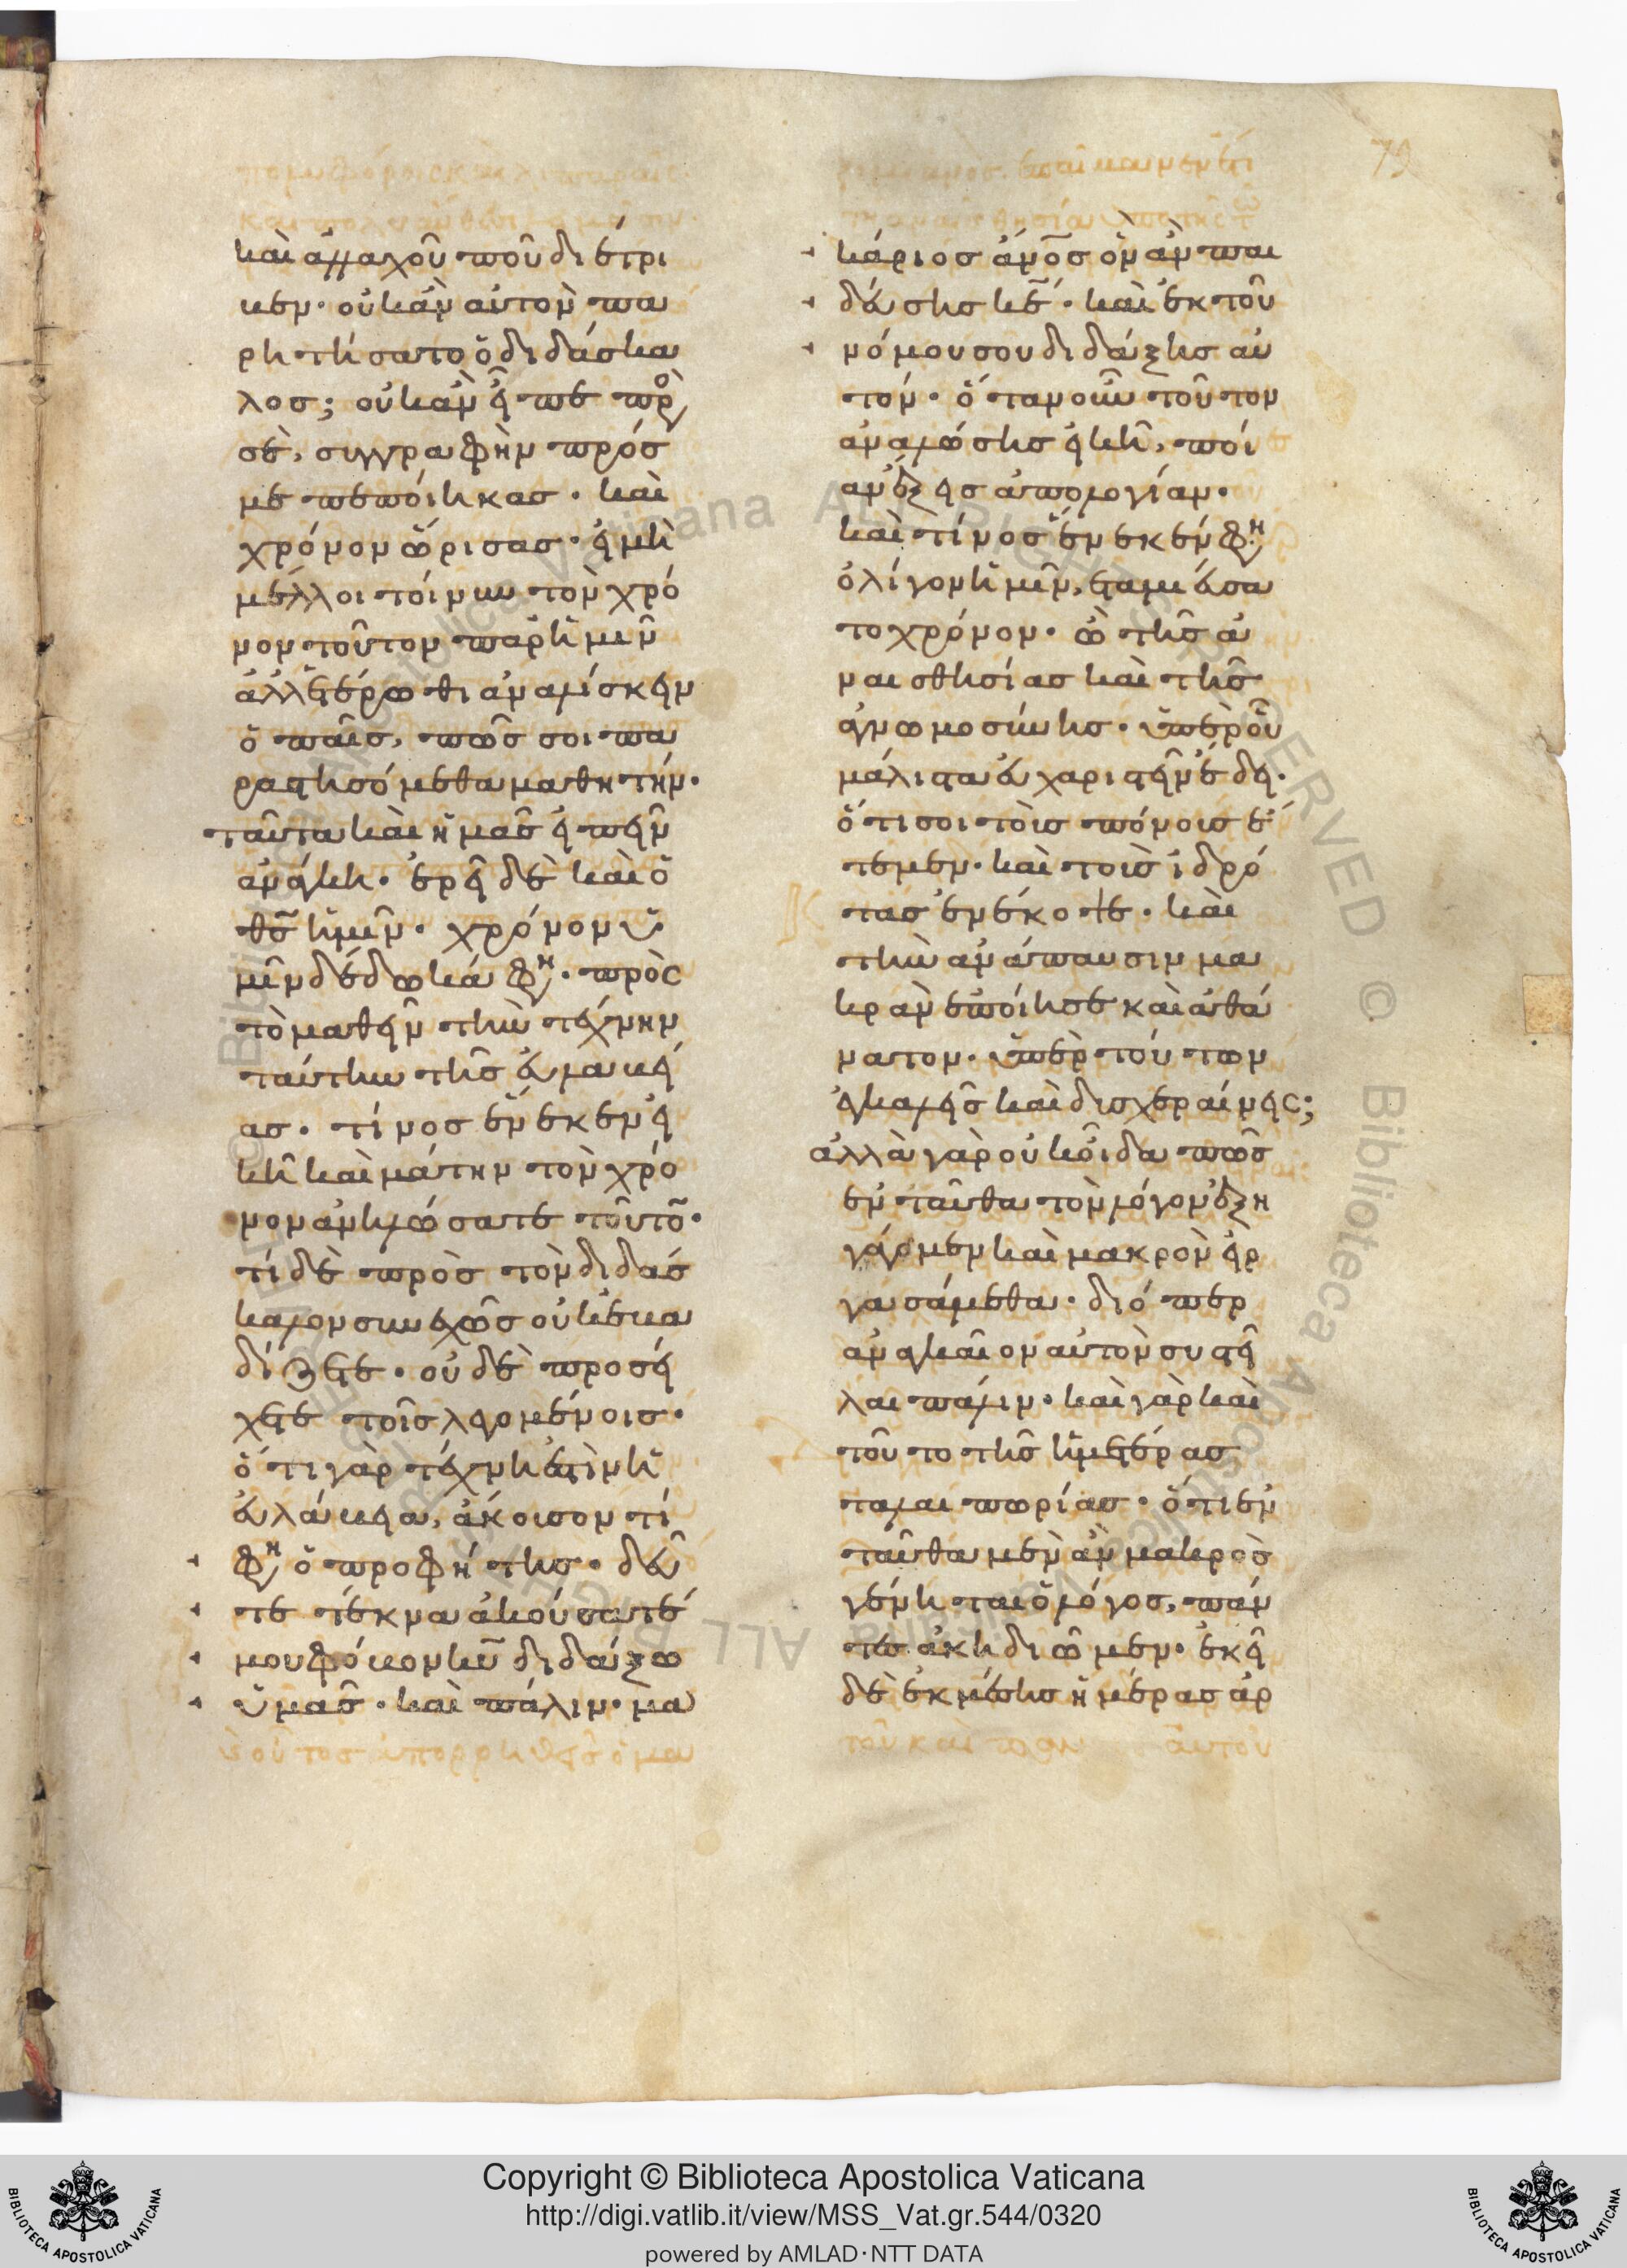 καὶ ἀλλαχοῦ που διέτρι
βεν· οὐκ ἂν αὐτὸν πα
ρῃτήσατο ὁ διδάσκα
λος; οὐκ ἂν εἶπε πρὸ
σὲ, συγγραφὴν πρός
με πεποίηκας· καὶ
χρόνον ὥρισας· εἰ μὴ
μέλλοι τοίνυν τὸν χρό
νον τοῦτον παρ' ἡμῖν
ἀλλ' ἑτέρωθι ἀναλίσκειν
ὁ παῖς, πῶς σοι πα
ραστησόμεθα μαθητήν·
ταῦτα καὶ ἡμᾶς εἰπεῖν
ἀνάγκη· ἐρεῖ δὲ καὶ ὁ
θς ἡμῖν· χρόνον ὑ
μῖν δέδωκά φη· πρὸς
τὸ μαθεῖν τὴν τέχνην
ταύτην τῆς εὐλαβεί
ας· τίνος ἕνεκεν εἰ
κῆ καὶ μάτην τὸν χρό
νον ἀνηλώσατε τοῦτο·
τί δὲ πρὸς τὸν διδάσ
καλον συνεχῶς οὐκ ἐβα
δίζετε· οὐδὲ προσεί
χετε τοῖς λεγομένοις·
ὅτι γὰρ τέχνη ἐστὶν ἡ
εὐλάβεια, ἄκουσον τί
φη ὁ προφήτης· δεῦ
τε τέκνα ἀκούσατέ
μου φόβον κυ διδάξω
ὑμᾶς· καὶ πάλιν· μα
κάριος ἄνος ὃν ἂν παι
δεύσῃς κε· καὶ ἐκ τοῦ
νόμου σου διδάξῃς αὐ
τόν· ὅταν οὖν τοῦτον
ἀναλώσῃς εἰκῆ, ποί
αν ἕξεις ἀπολογίαν·
καὶ τίνος ἕνεκέν φη
ὀλίγον ἡμῖν, ἐταμιεύσα
το χρόνον· ὢ τῆς ἀ
ναισθησίας καὶ τῆς
ἀγνωμοσύνης· ὑπὲρ οὗ
μάλιστα εὐχαριστεῖν ἔδει·
ὅτι σοι τοὺς πόνους ἐ
τεμεν· καὶ τοὺς ἱδρῶ
τας ἐνέκοψε· καὶ
τὴν ἀνάπαυσιν μα
κρὰν ἐποίησε καὶ ἀθά
νατον· ὑπὲρ τούτων
ἐγκαλεῖς καὶ δυσχεραίνεις;
ἀλλὰ γὰρ οὐκ οἶδα πῶς
ἐνταῦθα τὸν λόγον ἐξη
γάγομεν καὶ μακρὸν εἰρ
γασάμεθα· διόπερ
ἀναγκαῖον αὐτὸν συστεῖ
λαι πάλιν· καὶ γὰρ καὶ
τοῦτο τῆς ἡμετέρας
ταλαιπωρίας· ὅτι ἐν
ταῦθα μὲν ἂν μακρὸς
γένηται ὁ λόγος, πάν
τες ἀκηδιῶμεν· ἐκεῖ
δὲ ἐκ μέσης ἡμέρας ἀρ
79
Copyright © Biblioteca Apostolica Vaticana
http://digi.vatlib.it/view/MSS_Vat.gr.544/0320
powered by AMLAD·NTT DATA
BIBLIOTECA APOSTOLICA VATICANA
BIBLIOTECA APOSTOLICA VATICANA